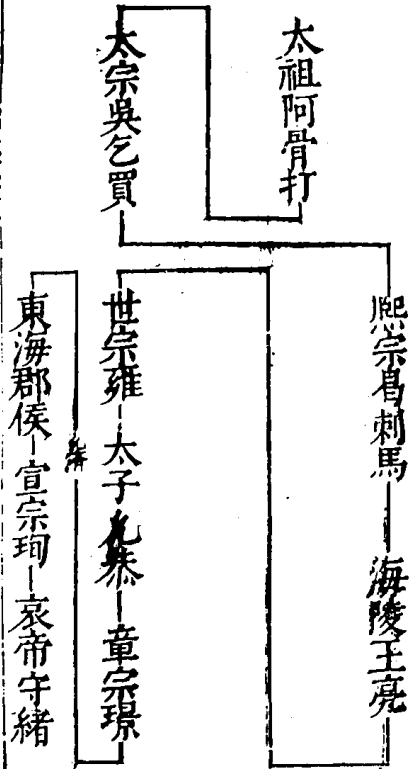 太祖阿骨打
太宗吳乞買
熙宗曷刺馬
海陵王亮
世宗雍
太子允恭
章宗璟
東海郡侯
宣宗珣
哀帝守緒